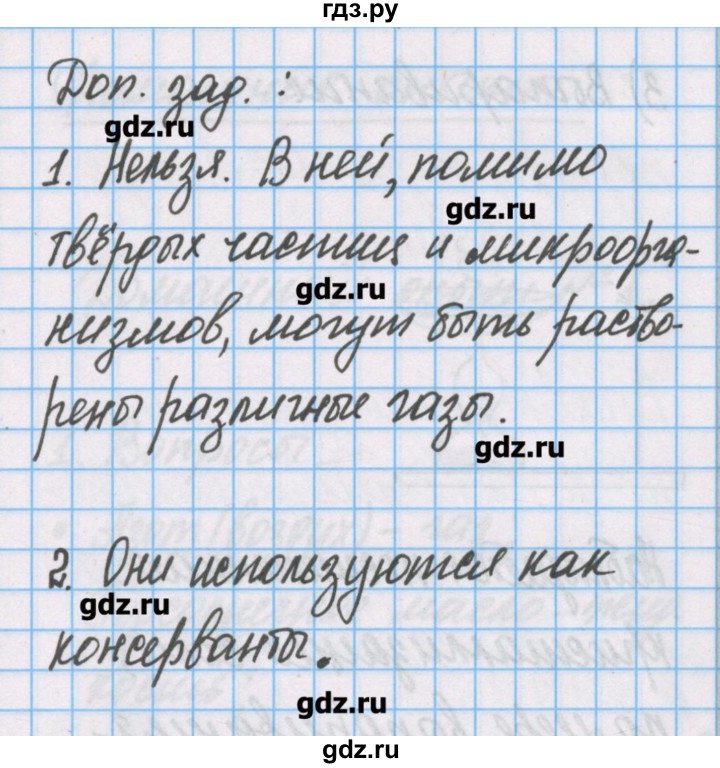 гдз.ру
Доп. зад. :
gdz.ru
1. Нельзя. В ней, помимо
gdz.ru
твёрдых частиц и микроорга-
gdz.ru
низмов, могут быть раство-
рены различные газы.
gdz.ru
2. Они используются как
gdz.ru
консерванты.
gdz.ru
gdz.ru